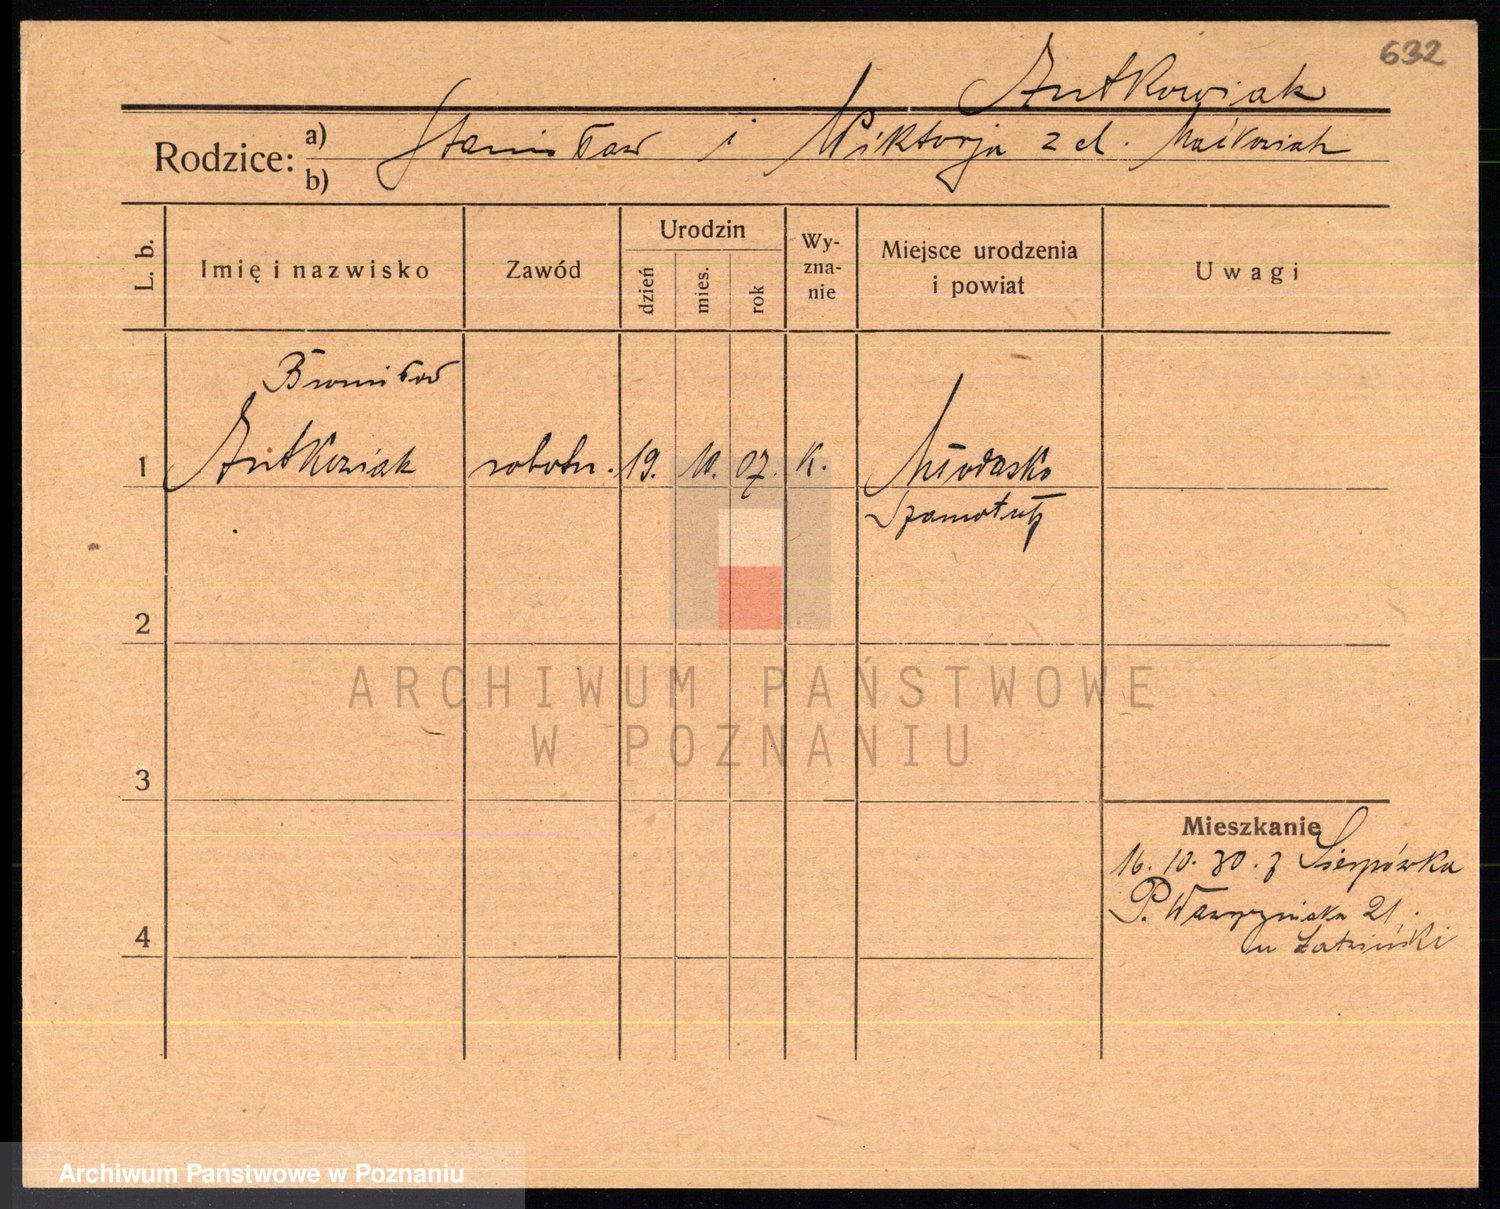 632
Antkowiak
Rodzice: a) Stanisław i Wiktorja z d. Maćkowiak
b)
L. b.
Imię i nazwisko
Zawód
Urodzin
dzień
mies.
rok
Wy-
zna-
nie
Miejsce urodzenia
i powiat
Uwagi
Bronisław
1 Antkowiak robotn. 19. 10. 07. K. Młodasko
Szamotuły
2
ARCHIWUM PAŃSTWOWE
W POZNANIU
3
Mieszkanie
16. 10. 30. z Sierpówka
P. Wawrzyńska 21.
4
u
Archiwum Państwowe w Poznaniu